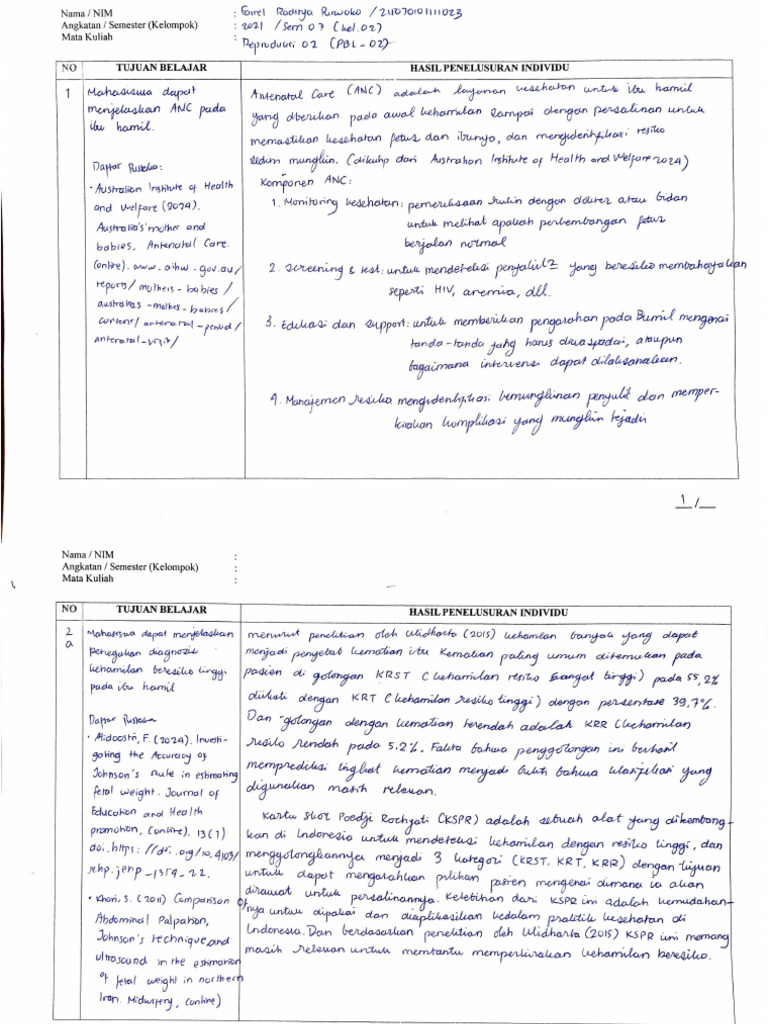 Nama / NIM : Farrel Raditya Purwoko / 211070101111023
Angkatan / Semester (Kelompok) : 2021 / Sem 07 (kel.02)
Mata Kuliah : Reproduksi 02 (PBL-02)
NO TUJUAN BELAJAR HASIL PENELUSURAN INDIVIDU
1 Mahasiswa dapat
menjelaskan ANC pada
ibu hamil.
Daftar Pustaka:
• Australian Institute of Health
and Welfare (2024).
Australia's mother and
babies, Antenatal Care.
(online). www.aihw.gov.au/
reports/mothers-babies/
australias-mother-babies/
content/antenatal-period/
antenatal-visit/
Antenatal Care (ANC) adalah layanan kesehatan untuk ibu hamil
yang diberikan pada awal kehamilan sampai dengan persalinan untuk
memastikan kesehatan fetus dan ibunya, dan mengidentifikasi resiko
sedini mungkin. (dikutip dari Australian Institute of Health and Welfare 2024)
Komponen ANC:
1. Monitoring kesehatan: pemeriksaan rutin dengan dokter atau bidan
untuk melihat apakah perkembangan fetus
berjalan normal
2. Screening & test: untuk mendeteksi penyakit2 yang beresiko membahayakan
seperti HIV, anemia, dll.
3. Edukasi dan support: untuk memberikan pengarahan pada Bumil mengenai
tanda-tanda yang harus diwaspadai, ataupun
bagaimana intervensi dapat dilaksanakan.
4. Manajemen resiko mengidentifikasi kemungkinan penyakit dan memper-
kirakan komplikasi yang mungkin terjadi
1/
Nama / NIM :
Angkatan / Semester (Kelompok) :
Mata Kuliah :
NO TUJUAN BELAJAR HASIL PENELUSURAN INDIVIDU
2
a
Mahasiswa dapat menjelaskan
penegakan diagnosis
kehamilan beresiko tinggi
pada ibu hamil
Daftar Pustaka
• Alidoosti, F. (2024). Investi-
gating the Accuracy of
Johnson's rule in estimating
fetal weight. Journal of
Education and Health
promotion, (online). 13(1)
doi.https://doi.org/10.4103/
jehp.jehp_1359_22.
• Khani, S. (2011) Comparison of
Abdominal Palpation,
Johnson's technique and
ultrasound in the estimation
of fetal weight in northern
Iran. Midwifery, (online)
menurut penelitian oleh Widharta (2015) kehamilan banyak yang dapat
menjadi penyebab kematian ibu kematian paling umum ditemukan pada
pasien di golongan KRST (kehamilan resiko sangat tinggi) pada 55,2%
diikuti dengan KRT (kehamilan resiko tinggi) dengan persentase 39,7%.
Dan golongan dengan kematian terendah adalah KRR (kehamilan
resiko rendah pada 5,2%. Fakta bahwa penggolongan ini berhasil
memprediksi tingkat kematian menjadi bukti bahwa klasifikasi yang
digunakan masih relevan.
Kartu Skor Poedji Rochjati (KSPR) adalah sebuah alat yang dikembang-
kan di Indonesia untuk mendeteksi kehamilan dengan resiko tinggi, dan
menggolongkannya menjadi 3 kategori (KRST, KRT, KRR) dengan tujuan
untuk dapat mengarahkan pilihan pasien mengenai dimana ia akan
dirawat untuk persalinannya. Kelebihan dari KSPR ini adalah kemudahan-
nya untuk dipakai dan diaplikasikan kedalam praktik kesehatan di
Indonesia. Dan berdasarkan penelitian oleh Widharta (2015) KSPR ini memang
masih relevan untuk membantu memperkirakan kehamilan beresiko.